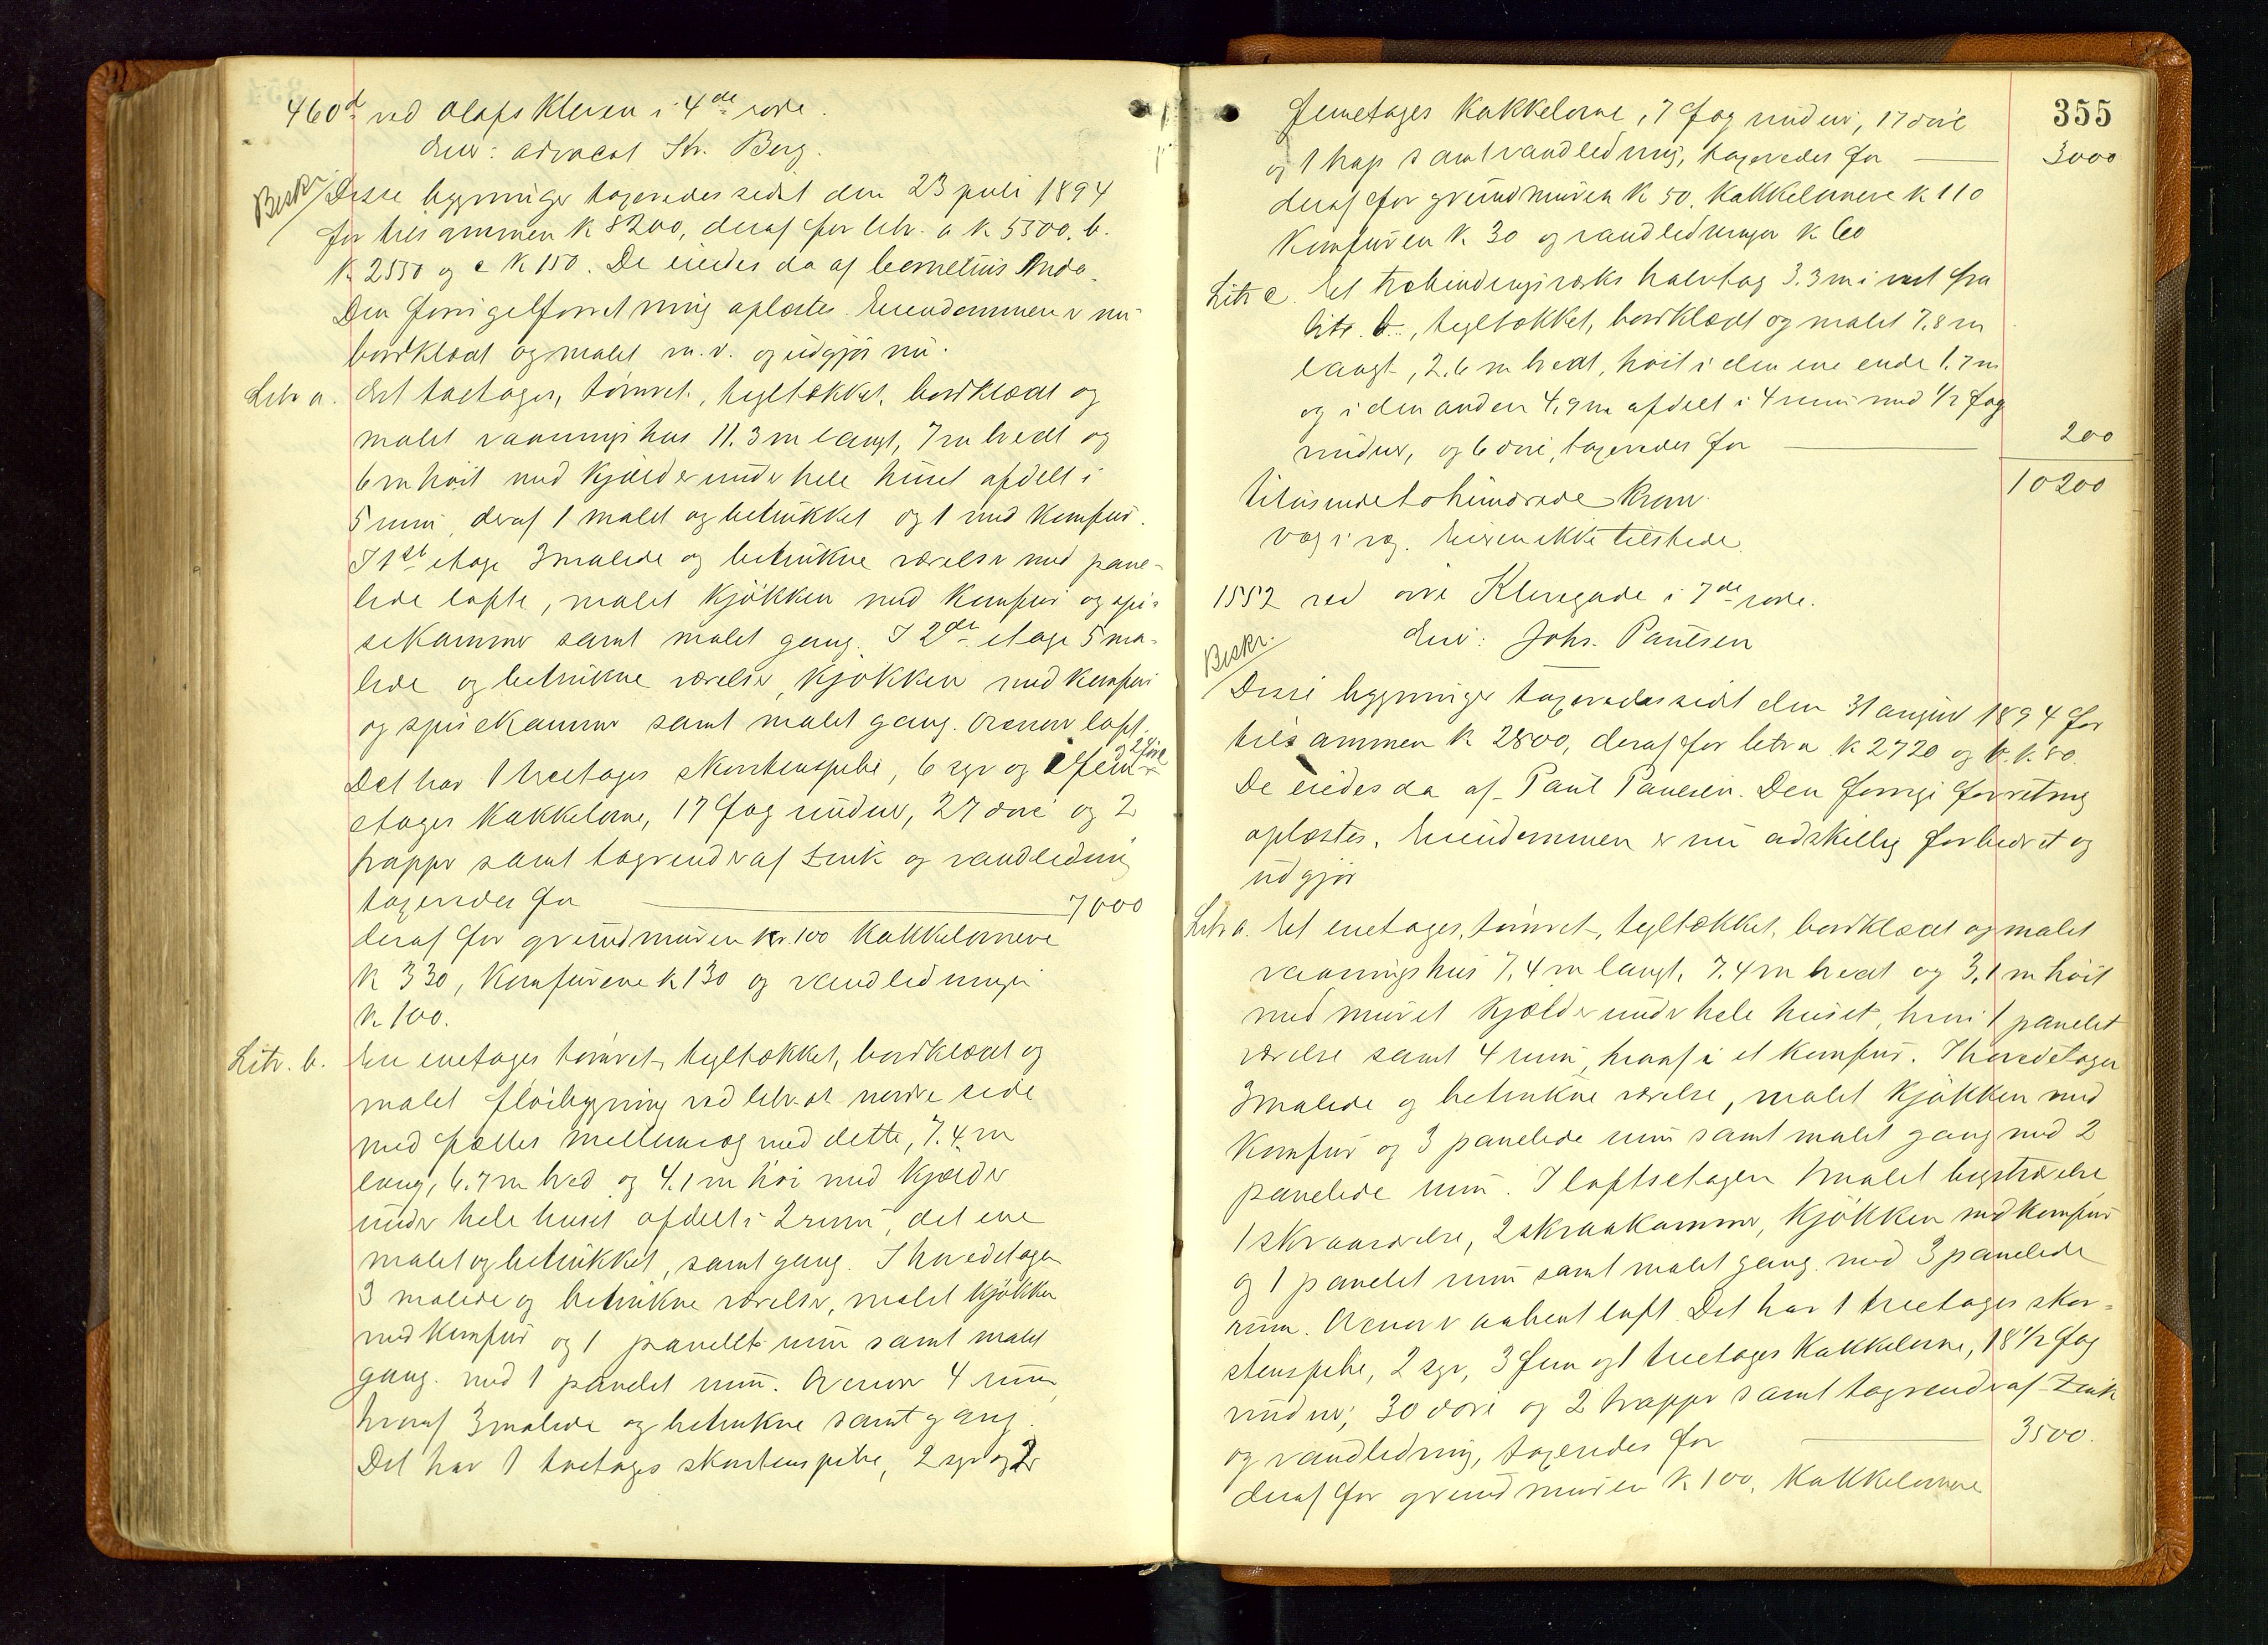 460d ved Olafskleven i 4de rode.
Eier: advocat Chr. Berg.
Beskr. Disse bygninger taxeredes sidst den 23 juli 1894
for tilsammen k 8200, deraf for litr. a k 5500, b.
k 2550 og c k 150. De eiedes da af Cornelius Anda.
Den forrige forretning oplæstes. Eiendommen er nu
bordklædt og malet m.v. og udgjør nu.
Litr a. Et toetages, tømret, tegltækket, bordklædt og
malet vaaningshus 11.3 m langt, 7 m bredt og
6 m høit med kjælder under hele huset afdelt i
5 rum, deraf 1 malet og betrukket og 1 med komfur.
I 1ste etage 3 malede og betrukne værelser med pane-
lede lofte, malet kjøkken med komfur og spi-
sekammer samt malet gang. I 2den etage 5 ma-
lede og betrukne værelser, kjøkken med komfur
og spisekammer samt malet gang. Ovenover loft.
Det har 1 treetages skorstenspibe, 6 syv og 2 fem
etages kakkelovne, 17 fag vinduer, 27 døre og 2
trapper samt tagrender af zink og vandledning
taxeredes for 7000
deraf for grundmuren kr. 100 kakkelovnene
k 330, komfurene k 130 og vandledningen
k 100.
Litr. b. En enetages tømret, tegltækket, bordklædt og
malet fløibygning ved litr. a's nordre side
med fælles mellemvæg med dette, 7.4 m
lang, 6.7 m bred og 4.1 m høi med kjælder
under hele huset afdelt i 2 rum, det ene
malet og betrukket, samt gang. I hovedetagen
3 malede og betrukne værelser, malet kjøkken
med komfur og 1 panelet rum samt malet
gang med 1 panelet rum. Ovenover 4 rum,
hvoraf 3 malede og betrukne samt gang.
Det har 1 toetages skorstenspibe, 2 syv og 2
355
femetages kakkelovne, 7 fag vinduer, 17 døre
og 1 trap samt vandledning, taxeredes for 3000
deraf for grundmuren k 50, kakkelovnene k 110
komfuren k. 30 og vandledningen k 60
Litr c. Et træbindingsværks halvtag 3.3 m i vest fra
litr. b., tegltækket, bordklædt og malet 7,8 m
langt, 2.6 m bredt, høit i den ene ende 1.7 m
og i den anden 4,9 m afdelt i 4 rum med 1/2 fag
vinduer, og 6 døre, taxeredes for 200
10200
titusindetohundrede kroner
væg i væg. Eieren ikke tilstede.
1552 ved øvre Klevegade i 7de rode.
Eier: Johs. Paulsen
Beskr. Disse bygninger taxeredes sidst den 31 august 1894 for
tilsammen k 2800, deraf for litr a k 2720 og b. k. 80.
De eiedes da af Paul Paulsen. Den forrige forretning
oplæstes. Eiendommen er nu adskillig forbedret og
udgjør
Litr a. Et enetages, tømret, tegltækket, bordklædt og malet
vaaningshus 7,4 m langt, 7.4 m bredt og 3,1 m høit
med muret kjælder under hele huset, hvori 1 panelet
værelse samt 4 rum, hvoraf i et komfur. I hovedetagen
3 malede og betrukne værelse, malet kjøkken med
komfur og 3 panelede rum samt malet gang med 2
panelede rum. I loftsetagen 1 malet kvistværelse,
1 skraaværelse, 2 skraakammer, kjøkken med komfur
og 1 panelet rum samt malet gang med 3 panelede
rum. Ovenover aabent loft. Det har 1 treetages skor-
stenspibe, 2 syv, 3 fem og 1 treetages kakkelovne, 18 1/2 fag
vinduer, 30 døre og 2 trapper samt tagrender af zink
og vandledning, taxeredes for 3500.
deraf for grundmuren k 100, kakkelovnene